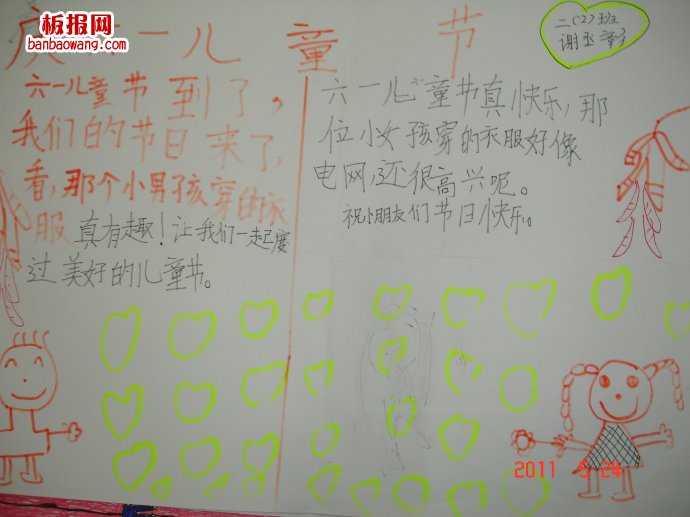 板报网
banbaowang.com
庆六一儿童节
二(2)班
六一儿童节到了，
我们的节日来了，
看，那个小男孩穿的衣
服真有趣！让我们一起度
过美好的儿童节。
六一儿童节真快乐，那
位小女孩穿的衣服好像
电网，还很高兴呢。
祝小朋友们节日快乐。
2011 5 24